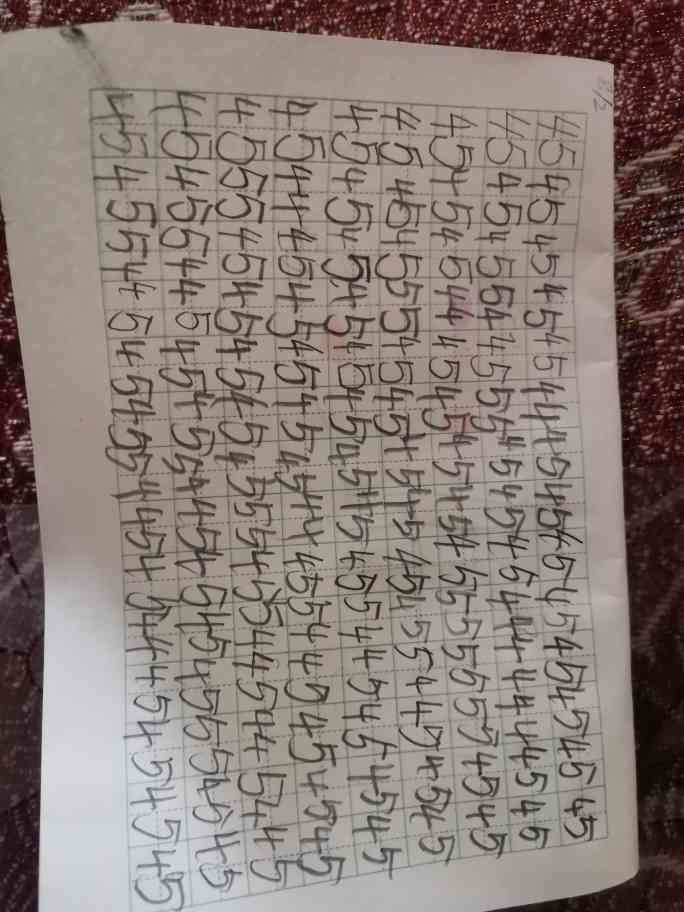 45 45 45 45 45 4 4 4 5 4 5 4 5 4 5 4 5 4 5 4 5 4 5 4 5
45 4 5 4 5 5 4 4 5 5 5 4 5 4 5 4 5 4 4 4 4 4 4 5 4 5
4 5 4 5 4 5 4 4 4 5 4 5 4 5 4 5 4 5 5 5 5 5 5 4 5 4 5
45 4 5 4 5 5 5 4 5 4 5 4 5 4 5 4 5 4 5 5 4 4 5 4 5 4 5
4 5 4 5 4 5 4 5 4 5 4 5 4 5 4 5 4 5 5 4 4 5 4 5 4 5 4 5
4 5 4 4 4 5 4 5 4 5 4 5 4 5 4 4 4 5 5 4 4 5 4 5 4 5 4 5
4 5 5 5 4 5 4 5 4 5 4 5 4 5 5 5 4 5 5 4 4 5 4 4 5 4 4 5
4 5 4 5 5 4 4 5 4 5 4 5 5 4 4 5 4 5 4 5 4 5 5 5 4 5 4 5
45 4 5 5 4 4 5 4 5 4 5 5 4 4 5 4 5 4 4 4 5 4 5 4 5 4 5